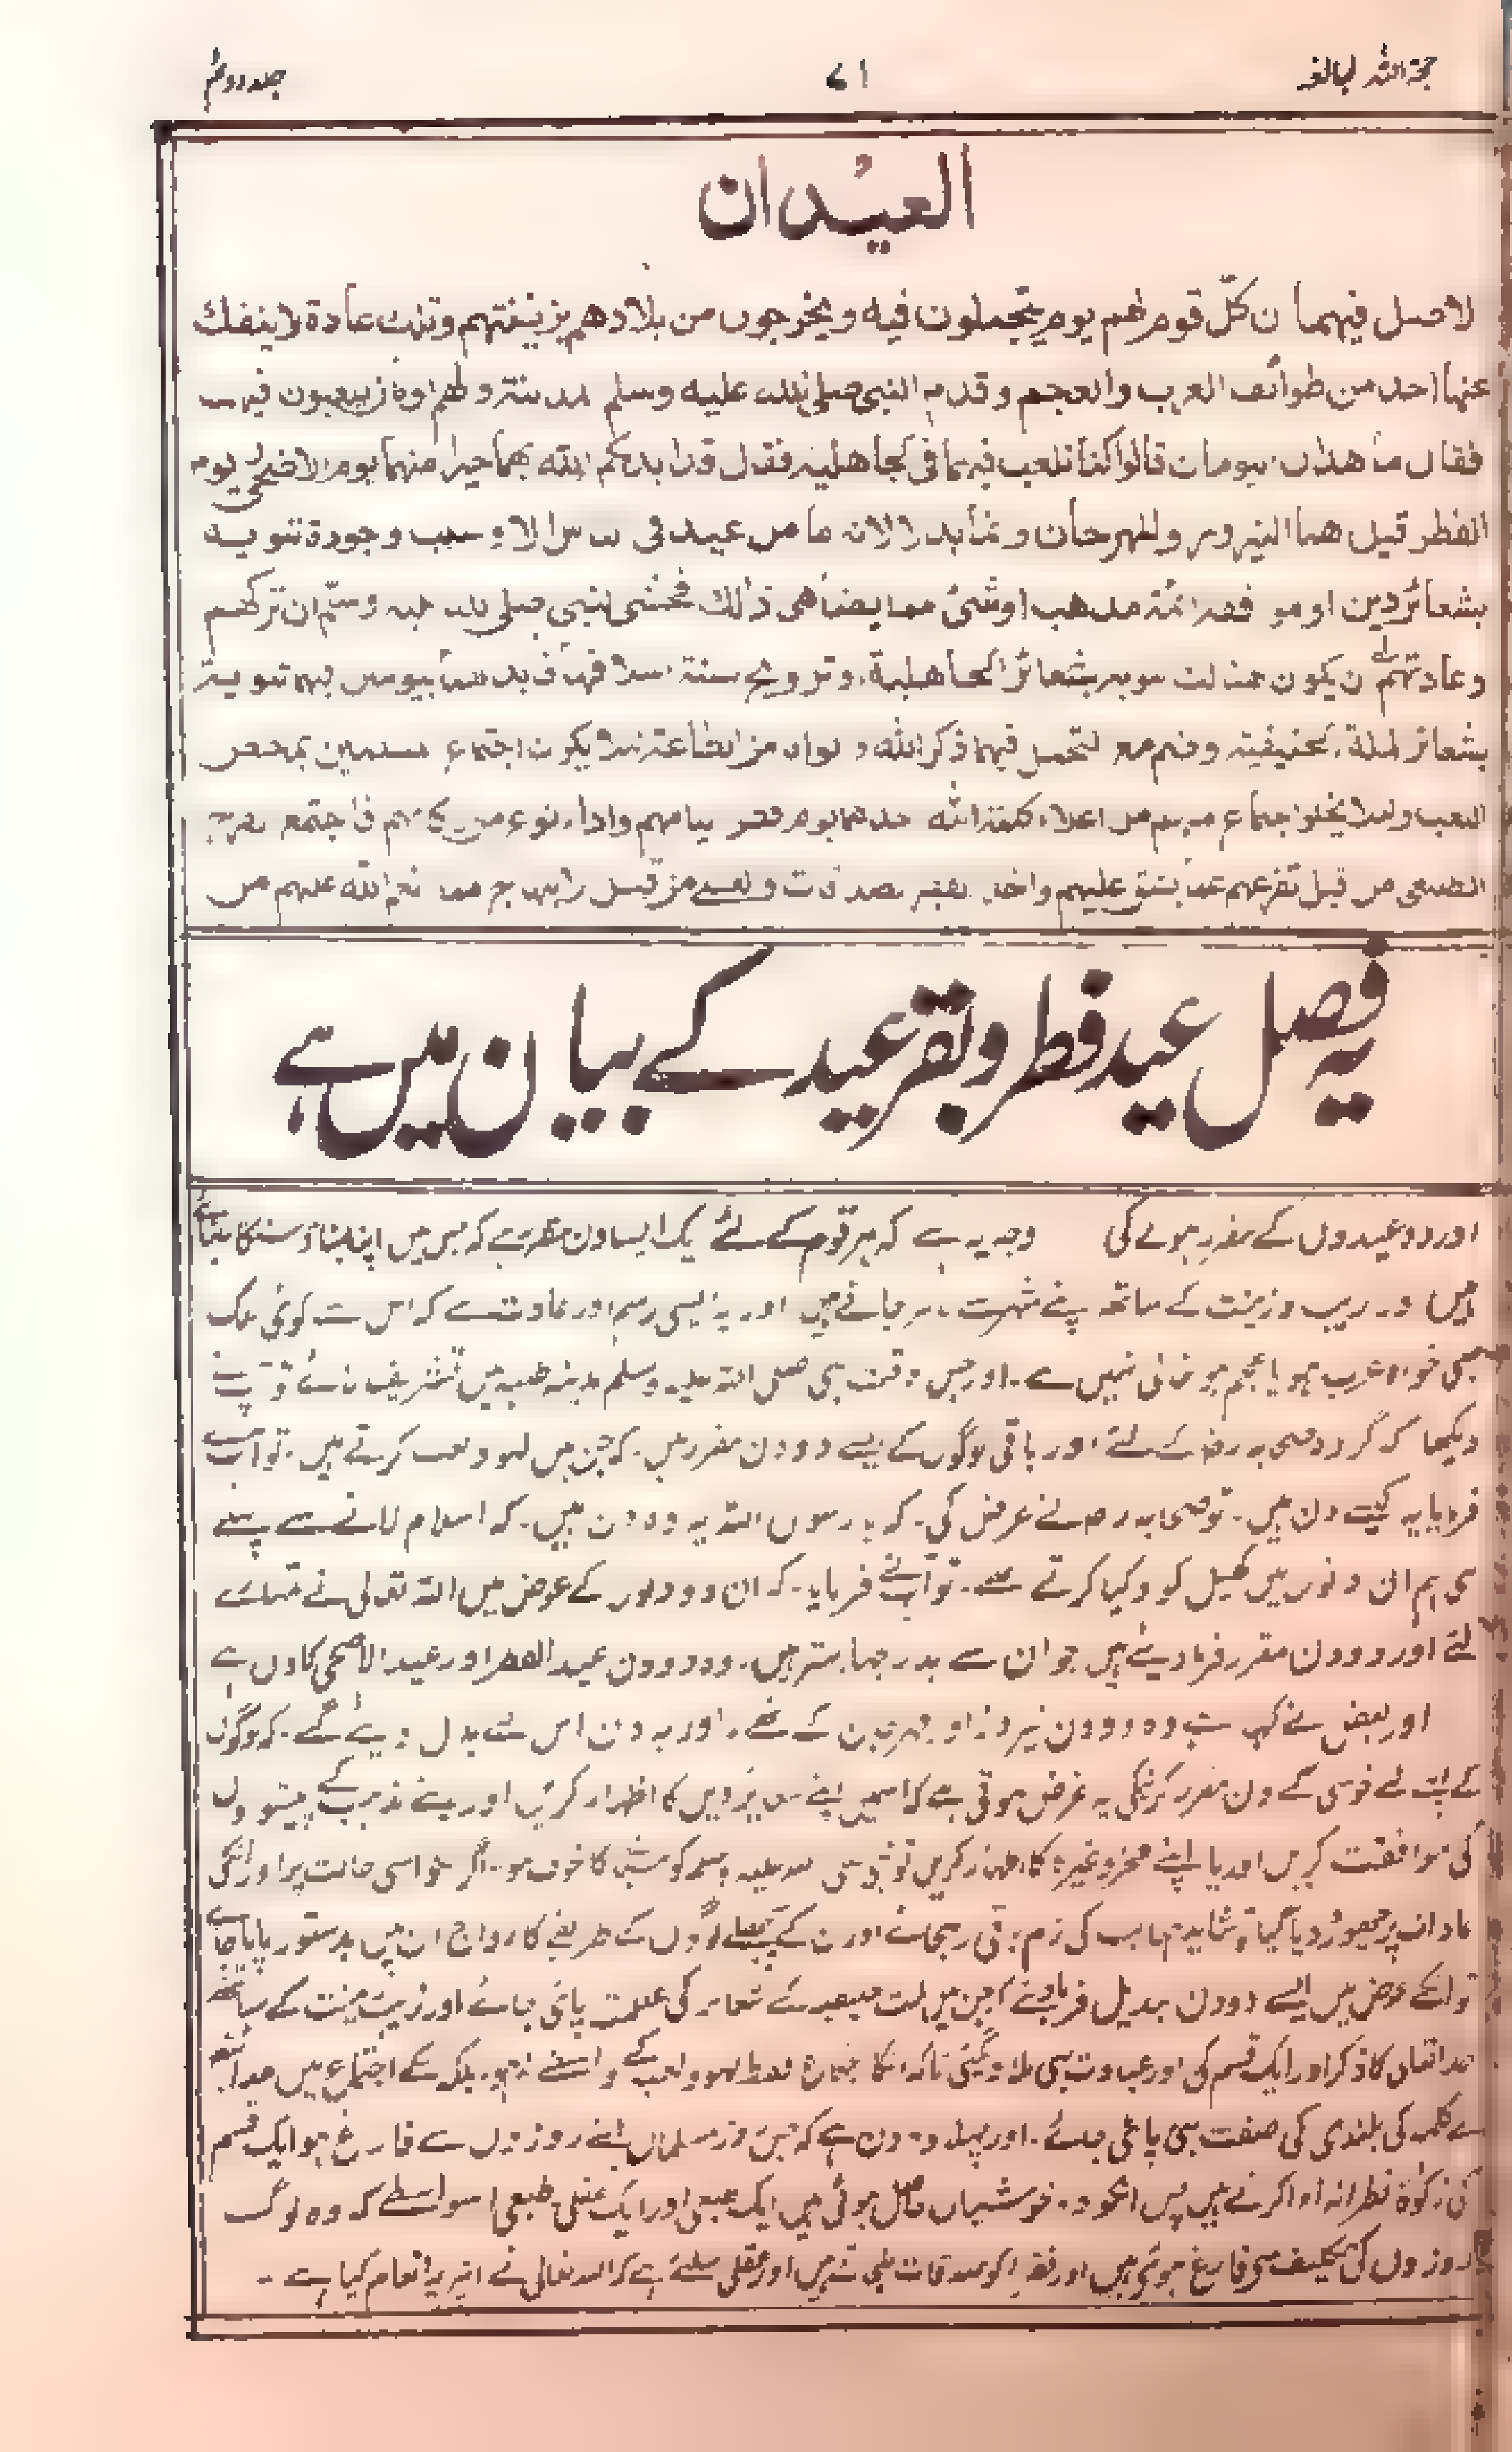 حجۃ اللہ البالغہ
۷۱
جلد دوئم
العیدان
الاصل فیهما ان کلّ قوم لهم یوم یتجملون فیه ویخرجون من بلادهم بزینتهم وتلك عادة لا ینفك
عنها احد من طوائف العرب والعجم وقدم النبی صلی الله علیه وسلم المدینة ولهم یومان یلعبون فیهما
فقال ما هذان الیومان قالوا کنا نلعب فیهما فی الجاهلیة فقال قد ابدلکم الله بهما خیرا منهما یوم الاضحی و یوم
الفطر قیل هما النیروز والمهرجان وانما بدلا لانه ما من عید فی الناس الا و سبب وجوده تنویه
بشعائر دین او موافقة ائمة مذهب او شئ مما یضاهی ذالك فخشی النبی صلی الله علیه وسلّم ان ترکهم
وعادتهم ان یکون هنالك تنویه بشعائر الجاهلیة و ترویج سنة اسلافها فابدلهما بیومین فیهما تنویه
بشعائر الملة الحنیفیة وضم مع التجمل فیهما ذکر الله و ابوابا من الطاعة لئلا یکون اجتماع المسلمین بمحض
اللعب ولئلا یخلو اجتماع منهم من اعلاء کلمة الله احدهما یوم فطر صیامهم واداء نوع من زکاتهم فاجتمع الفرح
الطبیعی من قبل تفرغهم عما یشق علیهم واخذ الفقیر الصدقات والعقلی من قبل الابتهاج مما انعم الله علیهم من
یہ فصل عید فطر و بقر عید کے بیان میں ہے
اور دو عیدوں کے مقرر ہونے کی وجہ یہ ہے کہ ہر قوم کے لئے ایک ایسا دن مقرر ہے کہ جس میں اپنا بناؤ سنگار بناتے
ہیں اور زیب و زینت کے ساتھ اپنے شہر سے باہر جاتے ہیں اور یہ ایسی رسم اور عادت ہے کہ اس سے کوئی ملک
بھی خواہ عرب ہو یا عجم ہو خالی نہیں ہے۔ اور جس وقت نبی صلی اللہ علیہ وسلم مدینہ طیبہ میں تشریف لائے تو آپ نے
دیکھا کہ گروہ صحابہ رضہ کے لئے اور باقی لوگوں کے لیے دو دن مقرر ہیں۔ کہ جن میں لہو و لعب کرتے ہیں۔ تو آپ نے
فرمایا یہ کیسے دن ہیں۔ تو صحابہ رضہ نے عرض کی۔ کہ یا رسول اللہ یہ وہ دن ہیں۔ کہ اسلام لانے سے پہلے
بھی ہم ان دنوں میں کھیل کود کیا کرتے تھے۔ تو آپ نے فرمایا۔ کہ ان دو دنوں کے عوض میں اللہ تعالی نے تمہارے
لئے اور دو دن مقرر فرما دیئے ہیں جو ان سے بدرجہا بہتر ہیں۔ وہ دو دن عید الفطر اور عید الاضحی کا دن ہے
اور بعض نے کہا ہے وہ دو دن نیروز اور مہرجان کے تھے۔ اور یہ دن اس لئے بدل دیئے گئے۔ کہ لوگوں
کے اپنے لئے خوشی کے دن مقرر کرنیکی یہ غرض ہوتی ہے کہ اسمیں اپنے شعائر دین کا اظہار کریں اور اپنے مذہب کے پیشواؤں
کی موافقت کریں اور یا اپنے فخر وغیرہ کا اظہار کریں تو نبی صلی اللہ علیہ وسلم کو اس بات کا خوف ہوا۔ اگر انکو اسی حالت پر اور انکی
عادات پر چھوڑ دیا گیا تو شاید جاہلیت کی رسم باقی رہجائے اور ان کے پچھلے لوگوں کے طریقے کا رواج ان میں بدستور پایا جائے
تو انکے عوض میں ایسے دو دن تبدیل فرمادیئے کہ جن میں ملت حنیفیہ کے شعائر کی عظمت پائی جائے اور زیب و زینت کے ساتھ
خدا تعالی کا ذکر اور ایک قسم کی اور عبادت بھی ملادی گئی تاکہ انکا اجتماع فقط لہو و لعب کے واسطے نہ ہو۔ بلکہ انکے اجتماع میں خدا تعالی
کے کلمہ کی بلندی کی صفت بھی پائی جائے۔ اور پہلا وہ دن ہے کہ جس روز مسلمان اپنے روزوں سے فارغ ہو ایک قسم
کی زکوٰۃ فطرانہ ادا کرتے ہیں پس انکو دو خوشیاں حاصل ہوئی ہیں ایک طبعی اور ایک عقلی طبعی اسواسطے کہ وہ لوگ
روزوں کی تکلیف سے فارغ ہوئے ہیں اور فقرا کو صدقات ملتے ہیں اور عقلی اسلئے ہے کہ اللہ تعالی نے انپر یہ انعام کیا ہے۔